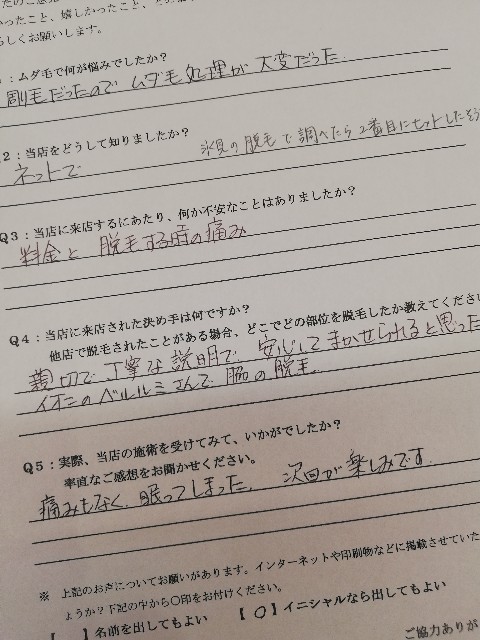 かったこと、嬉しかったこと、
ろしくお願いします。
：ムダ毛で何が悩みでしたか？
剛毛だったので ムダ毛処理が 大変だった
2：当店をどうして知りましたか？
ネットで
氷見の脱毛で調べたら2番目にヒットしたそう
Q3：当店に来店するにあたり、何か不安なことはありましたか？
料金と 脱毛する時の痛み
Q4：当店に来店された決め手は何ですか？
他店で脱毛されたことがある場合、どこでどの部位を脱毛したか教えてくださ
親切で丁寧な説明で、安心してまかせられると思った
イオンのベルルミさんで 脇の脱毛
Q5：実際、当店の施術を受けてみて、いかがでしたか？
率直なご感想をお聞かせください。
痛みもなく、眠ってしまった 次回が楽しみです。
※ 上記のお声についてお願いがあります。インターネットや印刷物などに掲載させていた
ょうか？下記の中から〇印をお付けください。
【 】名前を出してもよい 【 〇 】イニシャルなら出してもよい
ご協力ありが